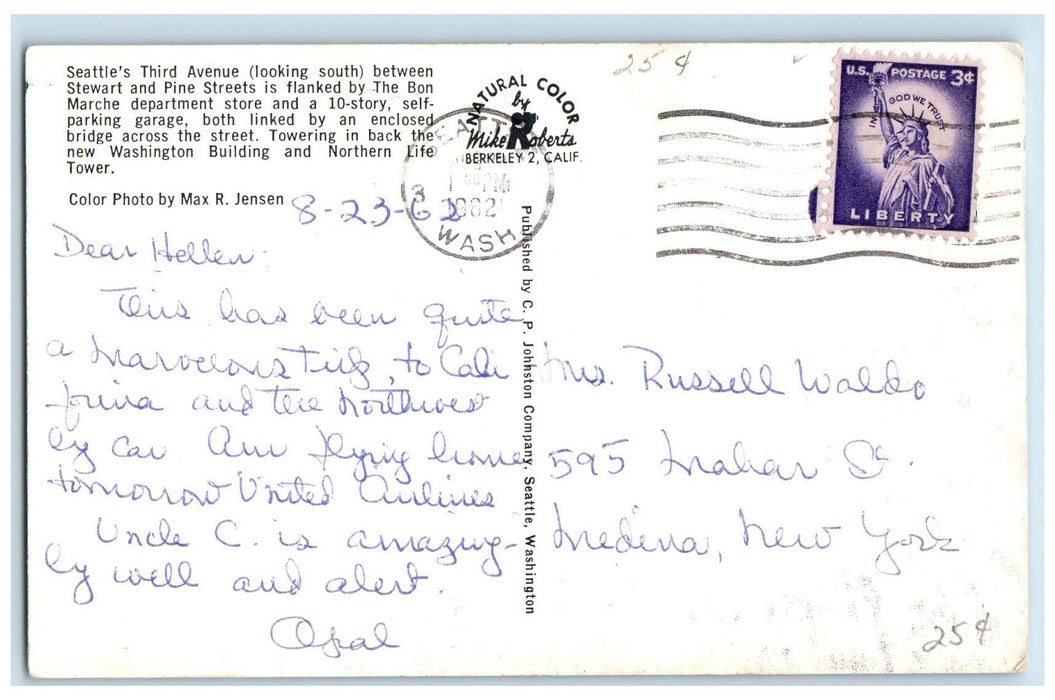 Seattle's Third Avenue (looking south) between
Stewart and Pine Streets is flanked by The Bon
Marche department store and a 10-story, self-
parking garage, both linked by an enclosed
bridge across the street. Towering in back the
new Washington Building and Northern Life
Tower.
Color Photo by Max R. Jensen
NATURAL COLOR
by
Mike Roberts
BERKELEY 2, CALIF.
SEATTLE
PM
1962
WASH
25¢
U.S. POSTAGE 3¢
IN GOD WE TRUST
LIBERTY
8-23-62
Dear Hellen:
This has been quite
a marvelous trip, to Cali
fornia and the Northwest
by car. Am flying home
tomorrow United Airlines
Uncle C. is amazing-
ly well and alert.
Opal
Published by C. P. Johnston Company, Seattle, Washington
Mrs. Russell Waldo
595 St.
Medina, New York
25¢